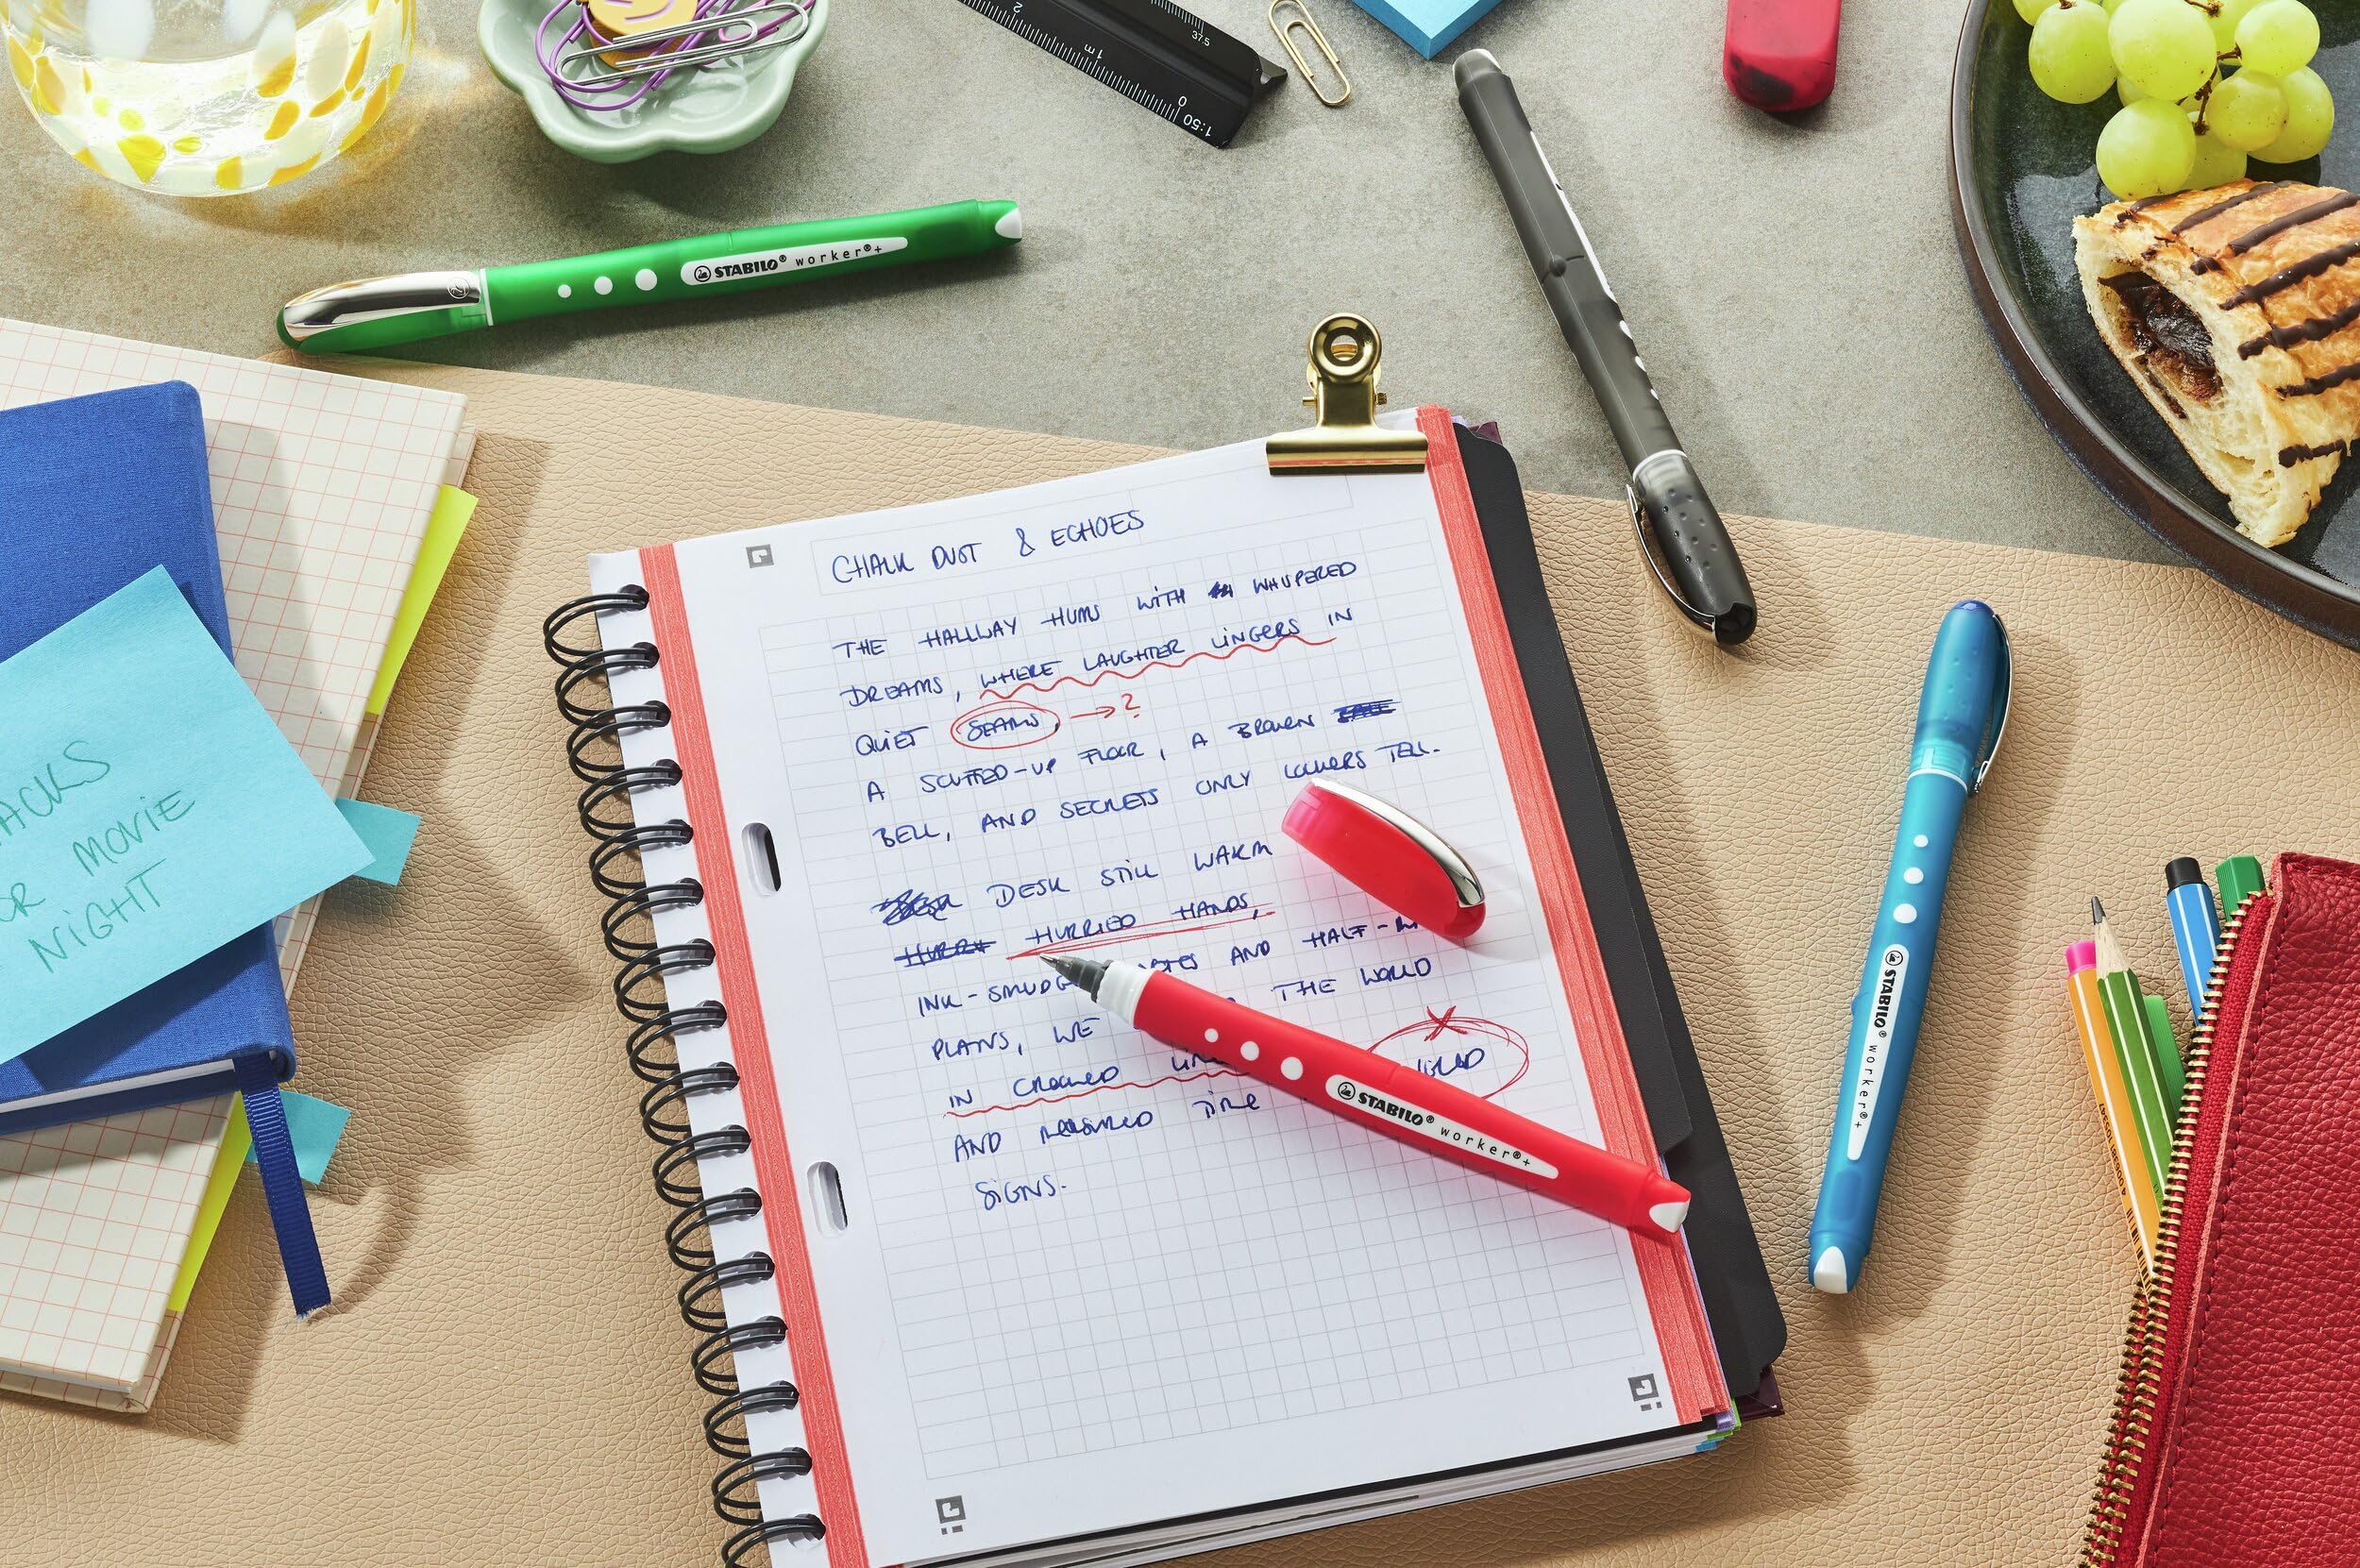 2
1 m
0
1:50
37.5
STABILO® worker®+
CHALK DUST & ECHOES
THE HALLWAY HUMS WITH WHISPERED
DREAMS, WHERE LAUGHTER LINGERS IN
QUIET SEAMS, → ?
A SCUFFED-UP FLOOR, A BROKEN
BELL, AND SECRETS ONLY LOCKERS TELL.
DESK STILL WARM
HURRIED HANDS,
INK-SMUDG AND HALF-
PLANS, WE THE WORLD
IN CROOKED
AND MEASURED TIME
SIGNS.
STABILO® worker®+
STABILO® worker®+
ACKS
OR MOVIE
NIGHT